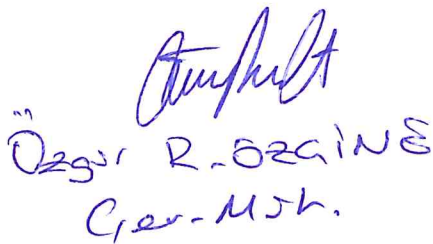 Özgür R. ÖZGİNE
Çev. Müh.